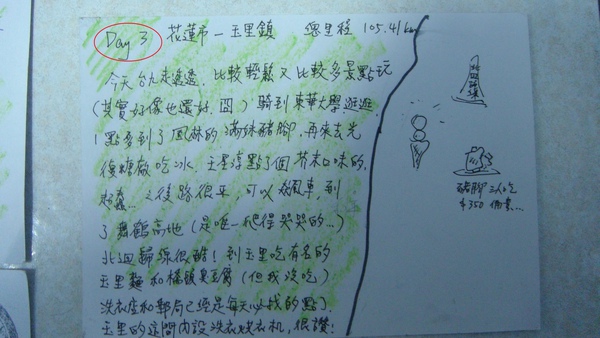 Day 3 花蓮市 – 玉里鎮 總里程 105.41km
今天台九走透透, 比較輕鬆又比較多景點玩
(其實好像也還好, 囧) 騎到東華大學, 逛逛
1點多到了鳳林的滿妹豬腳, 再來去光
復糖廠吃冰, 玉星淳點了個芥末口味的,
之後路很平, 可以飆車, 到
了舞鶴高地 (是唯一爬得哭哭的…)
北迴歸線很酷! 到玉里吃有名的
玉里麵和橋頭臭豆腐 (但我沒吃)
洗衣店和郵局已經是每天必找的點了,
玉里的這間內設洗衣脫衣机, 很讚!
豬腳 三人吃
$350